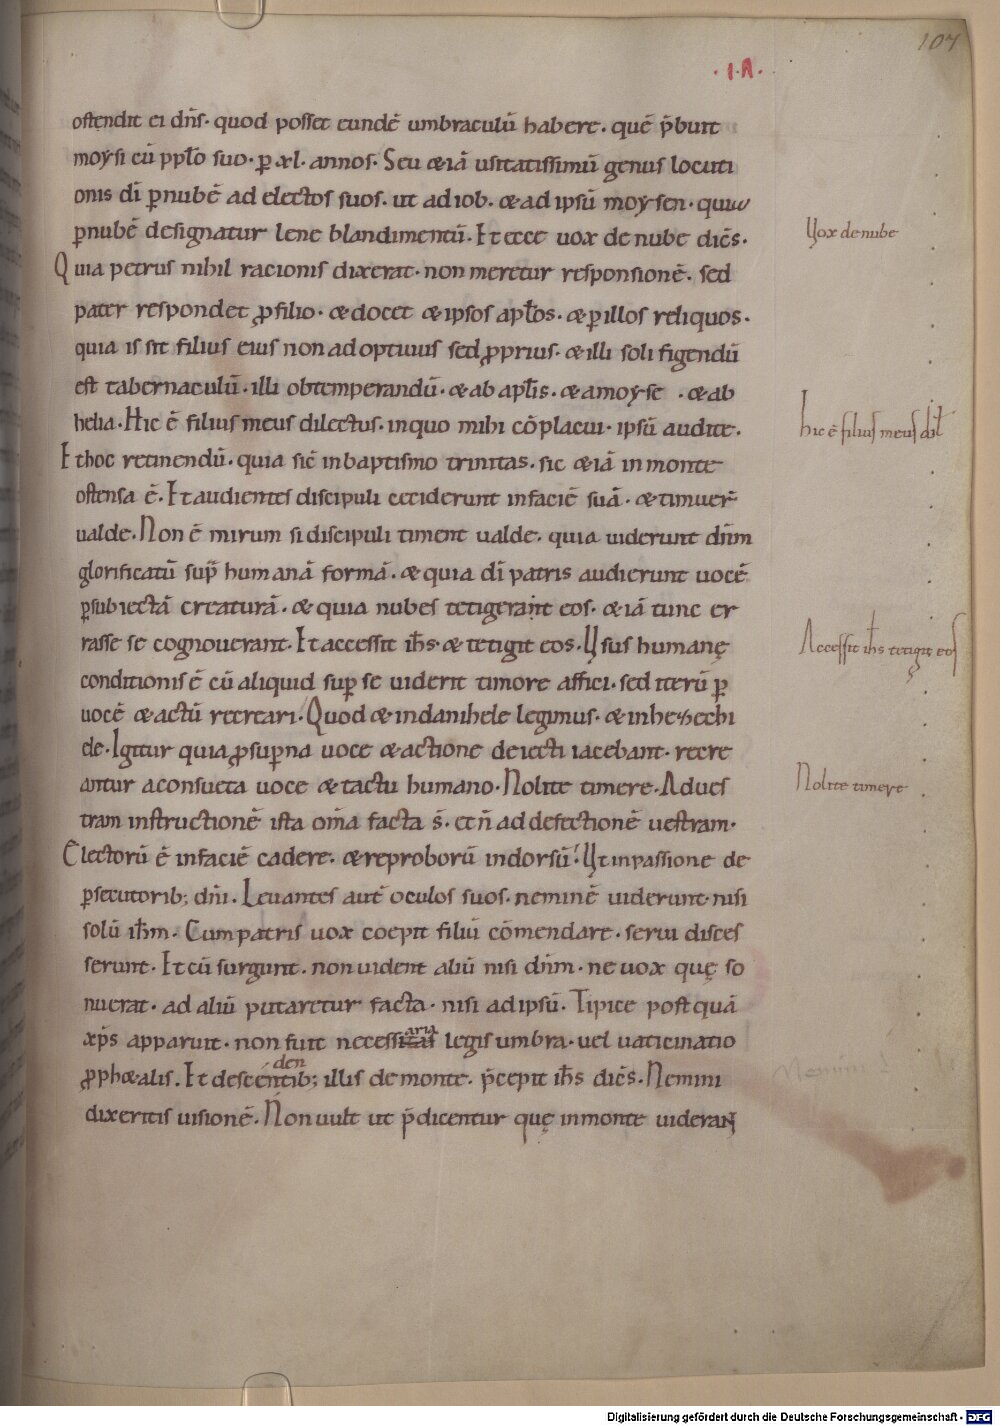 107
·I·A·
ostendit ei dn̄s· quod posset eundē umbraculū habere· quē p̄buit
moẏsi cū pp̄lo suo· ꝑ xl· annos· Seu & iā usitatissimū genus locuti
onis dī ꝑnubē ad electos suos· ut ad iob· & ad ipsū moẏsen· quia
ꝑnubē designatur lene blandimentū· Et ecce uox de nube dicēs·
Vox de nube
Quia petrus nihil racionis dixerat· non meretur responsionē· sed
pater respondet ꝓ filio· & docet & ipsos apl̄os· & ꝑ illos reliquos·
quia is sit filius eius non adoptiuus sed ꝓprius· & illi soli figendū
est tabernaculū· illi obtemperandū· & ab apl̄is· & a moẏse · & ab
helia· Hic ē filius meus dilectus· in quo mihi cōplacui· ipsū audite·
hic ē filius meus dil̄
Et hoc retinendū· quia sic̄ in baptismo trinitas· sic & iā in monte
ostensa ē· Et audientes discipuli ceciderunt in faciē suā· & timuer̄
ualde· Non ē mirum si discipuli timent ualde· quia uiderunt dn̄m
glorificatū sup̄ humanā formā· & quia dī patris audierunt uocē
ꝑsubiectā creaturā· & quia nubes tetigerant eos· & iā tunc er
rasse se cognouerant· Et accessit ih̄s· & tetigit eos· Vsus humanę
Accessit ih̄s tetigit eos
conditionis ē cū aliquid suꝑ se uiderit timore affici· sed iterū ꝑ
uocē & actū recreari· Quod & in danihele legimus· & in hezechi
ele· Igitur quia ꝓ suꝑna uoce & actione deiecti iacebant· recre
antur a consueta uoce & tactu humano· Nolite timere· Ad ues
Nolite timere
tram instructionē ista om̄a facta s̄· et n̄ ad defectionē uestram·
Electorū ē in faciē cadere· & reproborū in dorsū· Vt in passione de
ꝑsecutorib; dn̄i· Leuantes autē oculos suos· neminē uiderunt· nisi
solū ih̄m· Cum patris uox coepit filiū cōmendare· serui disces
serunt· Et cū surgunt· non uident aliū nisi dn̄m· ne uox quę so
nuerat· ad aliū putaretur facta· nisi ad ipsū· Tipice postquā
aria
xp̄s apparuit· non fuit necessitas legis umbra· uel uaticinatio
den
ꝓph&alis· Et descentib; illis de monte· p̄cepit ih̄s dicēs· Nemini
Nemini d
dixeritis uisionē· Non uult ut p̄dicentur quę in monte uiderant
Digitalisierung gefördert durch die Deutsche Forschungsgemeinschaft - DFG